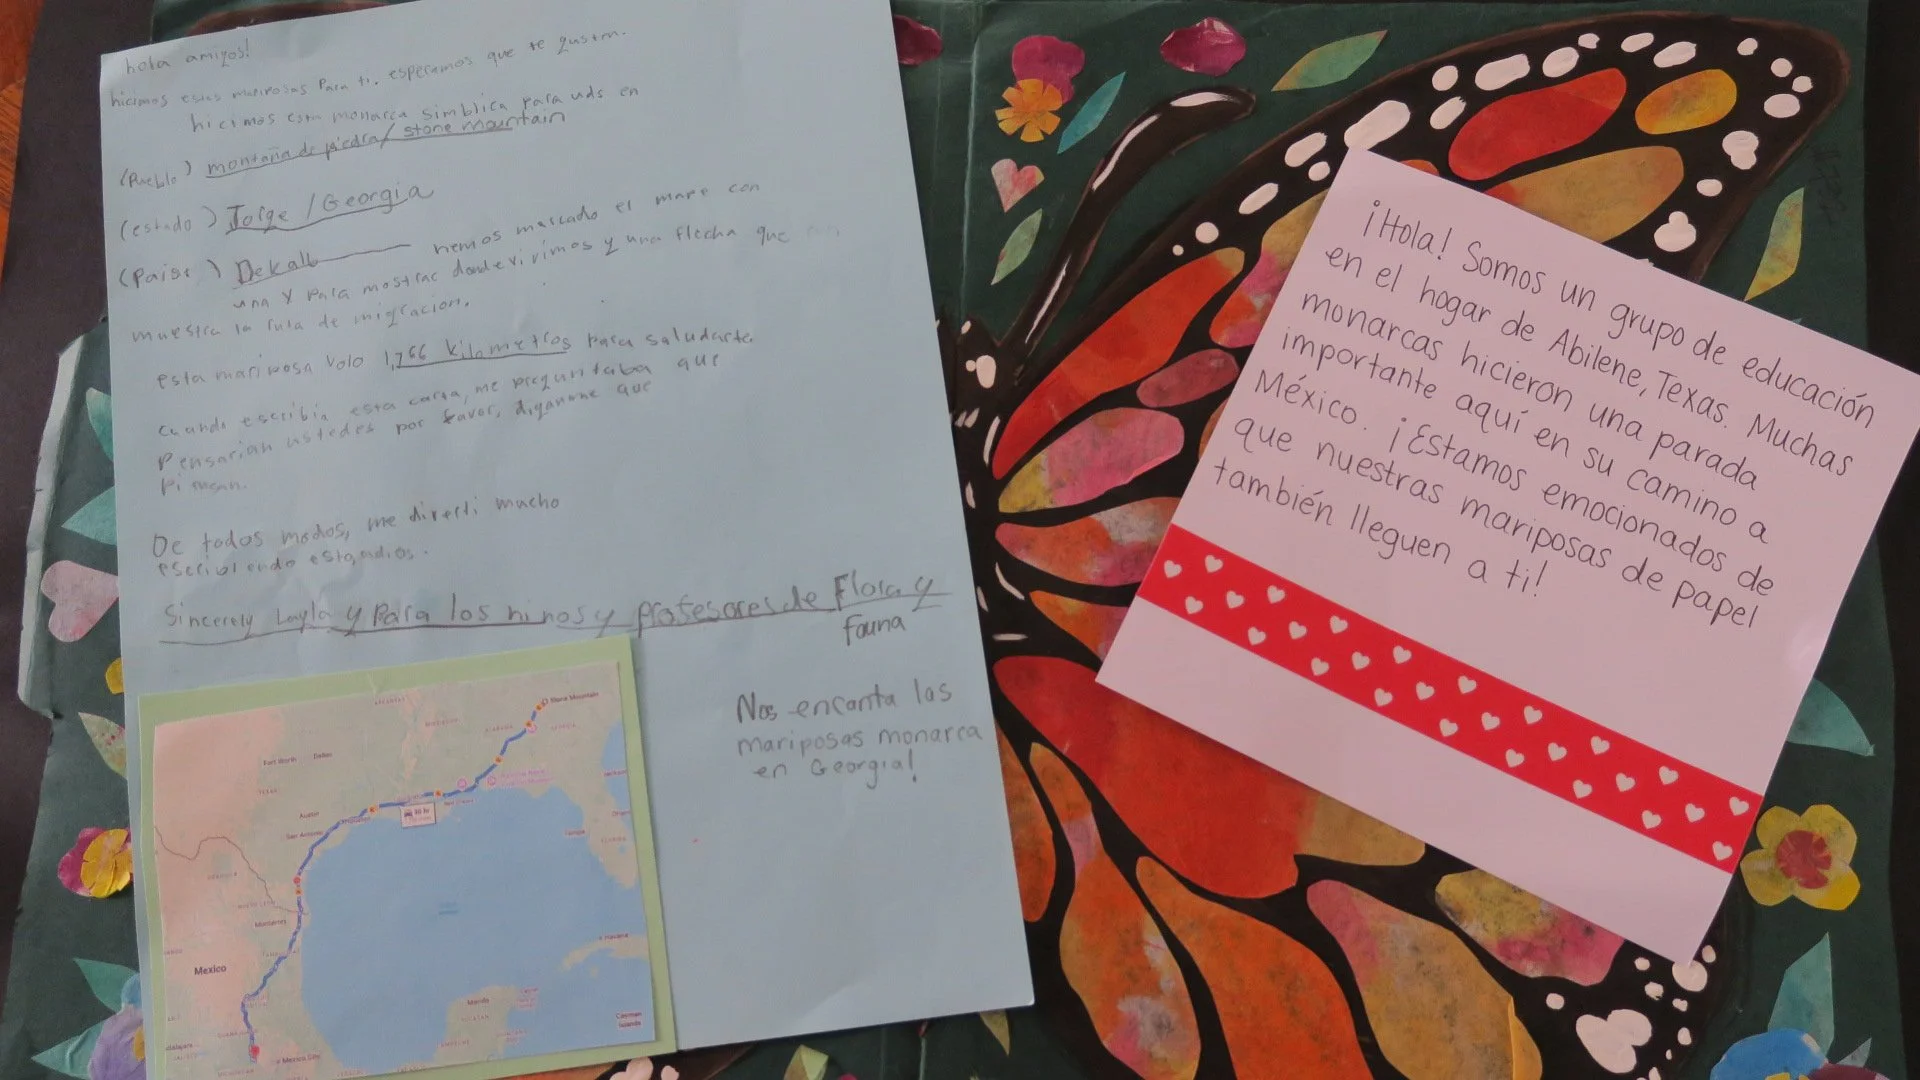 hola amigos!
hicimos estas mariposas Para ti. esperamos que te gusten.
hicimos esta monarca simblica para uds en
(Pueblo) montaña de piedra/stone mountain
(estado) Jorge/Georgia
(Paise) Dekalb hemos marcado el mapa con
una X para mostrar donde vivimos y una flecha que
muestra la ruta de migracion.
esta mariposa volo 1,766 kilometros para saludarte.
cuando escribia esta carta, me preguntaba que
Pensarian ustedes por favor, diganome que
De todas modos, me diverti mucho
escribiendo esto, adios.
Sincerely Layla y Para los ninos y profesores de Flora y
fauna
Nos encanta las
mariposas monarca
en Georgia!
Stone Mountain
Fort Worth
Dallas
TEXAS
ALABAMA
Austin
San Antonio
Monterrey
Mexico
Mexico City
Merida
Havana
Cayman
Islands
¡Hola! Somos un grupo de educación
en el hogar de Abilene, Texas. Muchas
monarcas hicieron una parada
importante aquí en su camino a
México. ¡Estamos emocionados de
que nuestras mariposas de papel
también lleguen a ti!